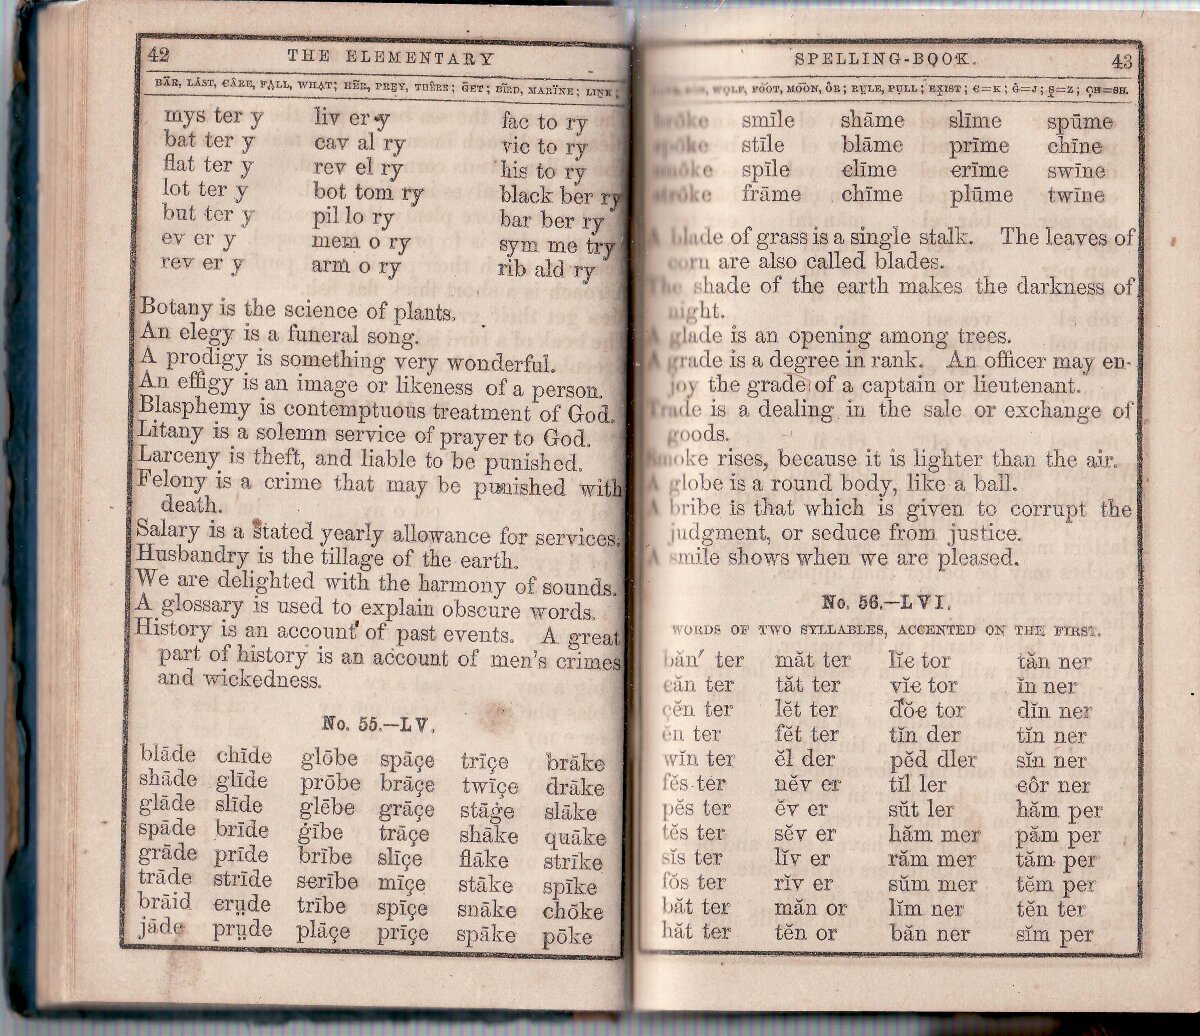 42 THE ELEMENTARY
BÄR, LÁST, CÂRE, FALL, WHAT; HER, PREY, THÊRE; GET; BÏRD, MARÏNE; LINK;
mys ter y liv er y fac to ry
bat ter y cav al ry vic to ry
flat ter y rev el ry his to ry
lot ter y bot tom ry black ber ry
but ter y pil lo ry bar ber ry
ev er y mem o ry sym me try
rev er y arm o ry rib ald ry
Botany is the science of plants.
An elegy is a funeral song.
A prodigy is something very wonderful.
An effigy is an image or likeness of a person.
Blasphemy is contemptuous treatment of God.
Litany is a solemn service of prayer to God.
Larceny is theft, and liable to be punished.
Felony is a crime that may be punished with
death.
Salary is a stated yearly allowance for services.
Husbandry is the tillage of the earth.
We are delighted with the harmony of sounds.
A glossary is used to explain obscure words.
History is an account of past events. A great
part of history is an account of men's crimes
and wickedness.
No. 55.—LV.
blāde chīde glōbe spāçe trīçe brāke
shāde glīde prōbe brāçe twīçe drāke
glāde slīde glēbe grāçe stāġe slāke
spāde brīde ġībe trāçe shāke quāke
grāde prīde brībe slīçe flāke strīke
trāde strīde scrībe mīçe stāke spīke
brāid crṳde trībe spīçe snāke chōke
jāde prṳde plāçe prīçe spāke pōke
SPELLING-BOOK. 43
WOLF, FOOT, MOON, ÔR; RULE, PULL; EXIST; C=K; Ġ=J; S=Z; ÇH=SH.
brōke smīle shāme slīme spūme
spōke stīle blāme prīme chīne
smōke spīle clīme crīme swīne
strōke frāme chīme plūme twīne
A blade of grass is a single stalk. The leaves of
corn are also called blades.
The shade of the earth makes the darkness of
night.
A glade is an opening among trees.
A grade is a degree in rank. An officer may en-
joy the grade of a captain or lieutenant.
Trade is a dealing in the sale or exchange of
goods.
Smoke rises, because it is lighter than the air.
A globe is a round body, like a ball.
A bribe is that which is given to corrupt the
judgment, or seduce from justice.
A smile shows when we are pleased.
No. 56.—LVI.
WORDS OF TWO SYLLABLES, ACCENTED ON THE FIRST.
băn′ ter măt ter lĭc tor tăn ner
căn ter tăt ter vĭc tor ĭn ner
çĕn ter lĕt ter dŏc tor dĭn ner
ĕn ter fĕt ter tĭn der tĭn ner
wĭn ter ĕl der pĕd dler sĭn ner
fĕs ter nĕv er tĭl ler côr ner
pĕs ter ĕv er sŭt ler hăm per
tĕs ter sĕv er hăm mer păm per
sĭs ter lĭv er răm mer tăm per
fŏs ter rĭv er sŭm mer tĕm per
băt ter măn or lĭm ner tĕn ter
hăt ter tĕn or băn ner sĭm per